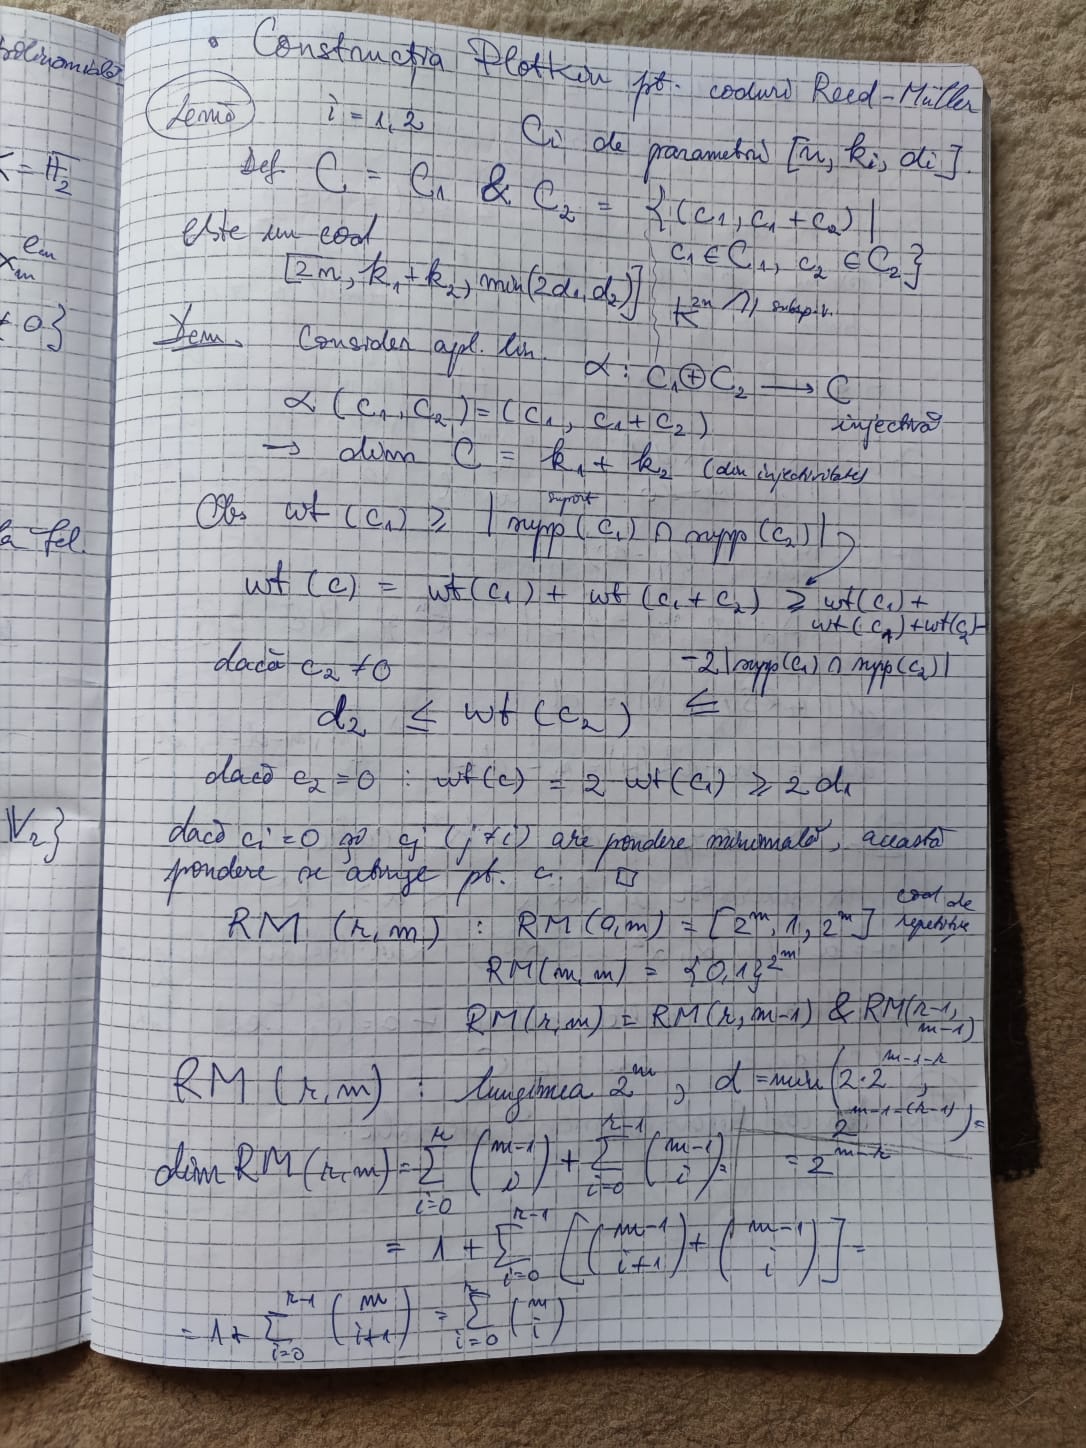 • Construcția Plotkin pt. coduri Reed-Müller
Lemă i = 1,2 Ci de parametri [n, ki, di].
Def C = C1 & C2 = {(c1, c1+c2) |
c1 ∈ C1, c2 ∈ C2}
este un cod
[2n, k1+k2, min(2d1, d2)]
K^{2n} subsp.v.
Dem. Consider apl. lin. α : C1 ⊕ C2 → C
injectivă
α (c1, c2) = (c1, c1+c2)
→ dim C = k1 + k2 (din injectivitate)
suport
Obs wt (c1) ≥ | supp(c1) ∩ supp(c2) |
wt (c) = wt(c1) + wt (c1+c2) ≥ wt(c1) +
wt(c1) + wt(c2) -
-2|supp(c1) ∩ supp(c2)|
dacă c2 ≠ 0
d2 ≤ wt (c2) ≤
dacă c2 = 0 : wt(c) = 2 wt(c1) ≥ 2d1
dacă ci = 0 și cj (j≠i) are pondere minimală, această
pondere se atinge pt. c. □
RM (r,m) : RM(0,m) = [2^m, 1, 2^m] cod de repetiție
RM(m,m) = {0,1}^{2^m}
RM(r,m) = RM(r,m-1) & RM(r-1, m-1)
RM (r,m) : lungimea 2^m, d = min(2·2^{m-1-r},
2^{m-1-(r-1)}) =
= 2^{m-r}
dim RM(r,m) = ∑_{i=0}^{r} (m-1 i) + ∑_{i=0}^{r-1} (m-1 i) =
= 1 + ∑_{i=0}^{r-1} [(m-1 i+1) + (m-1 i)] =
= 1 + ∑_{i=0}^{r-1} (m i+1) = ∑_{i=0}^{r} (m i)
K = F2
≠ 0}
la fel.